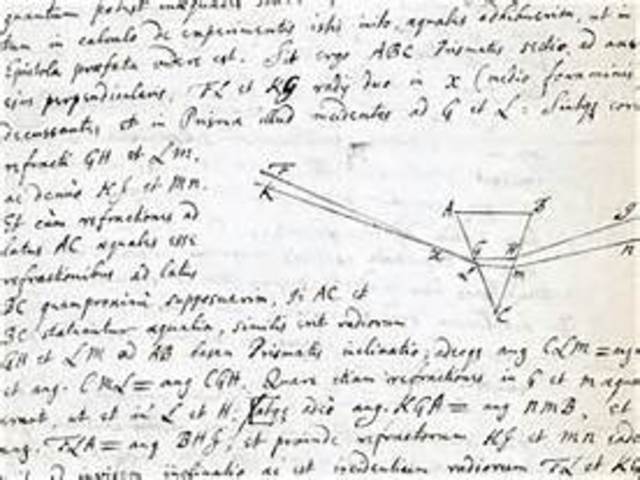 quantum potest
tum in calculo de experimentis istis inito, aequales adhibuerim, ut in
Epistola praefata videre est. Sit ergo ABC Prismatis sectio, ad
ejus perpendicularis, FL et KG radij duo in X (medio foraminis
decussantes et in Prisma illud incidentes ad G et L: Sintqȝ
refracti GH et LM,
ac denuo HJ et Mn.
Et cùm refractiones ad
latus AC aequales esse
refractionibus ad latus
BC quamproximè supposuerim, si AC et
BC statuantur aequalia, similis erit radiorum
GH et LM ad AB basem Prismatis inclinatio, adeoqȝ ang CLM =
et ang. CML = ang CGH. Quare etiam refractiones in G et M
erunt, ut et in L et H. adeò ang. KGA = ang nMB, et
ang. FLA = ang BHJ, et proinde refractorum HJ et Mn
inclinatio ac est incidentium radiorum FL et KG
F
K
A
B
X
G
H
L
M
C
J
n